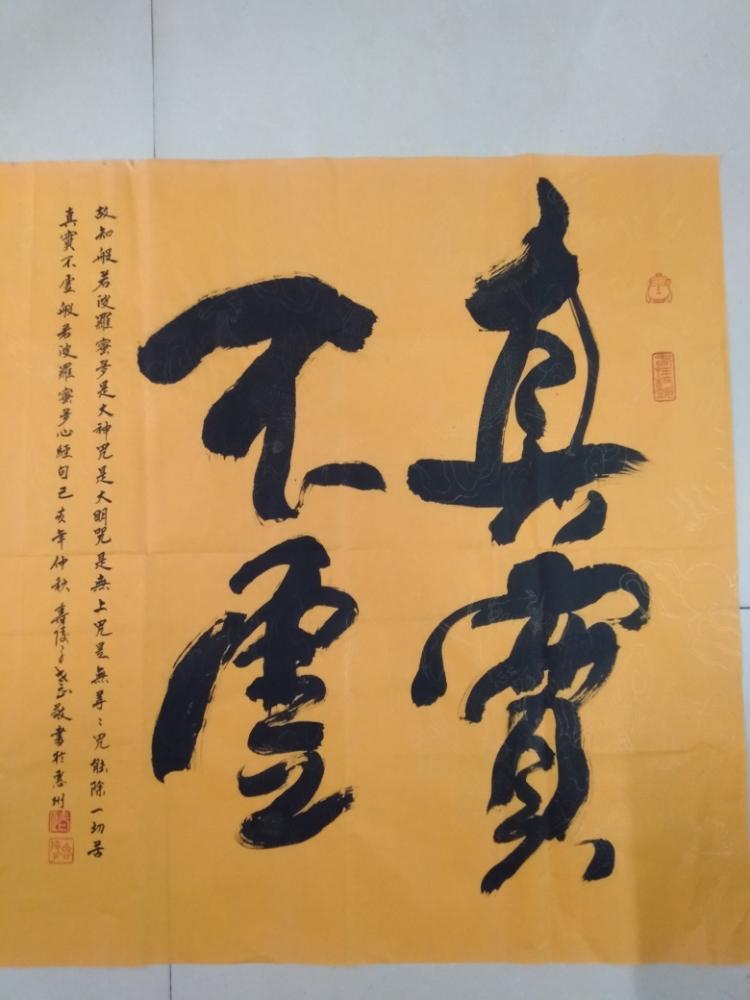 真實
不虛
故知般若波羅蜜多是大神咒是大明咒是無上咒是無等〻咒能除一切苦
真實不虛般若波羅蜜多心經句己亥年仲秋壽陵子 正敬書於惠州